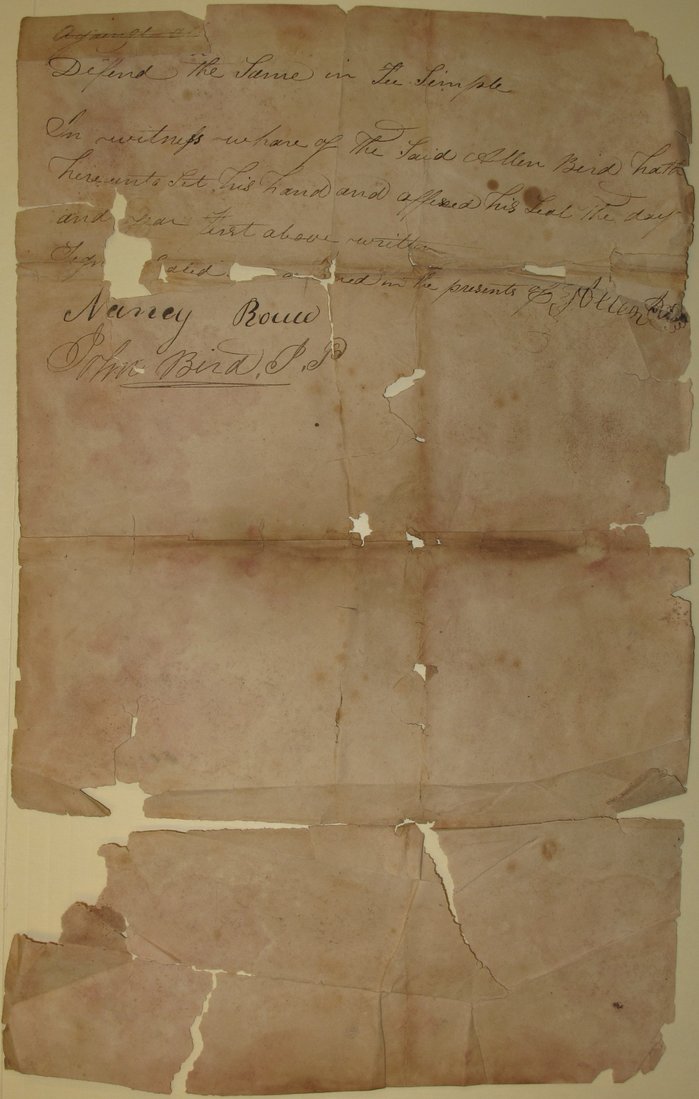 Defend the Same in Fee Simple
In witness whare of The Said Allen Bird hath
here unto Set his hand and affixed his Seal the day
and year First above written
in the presents of
Nancy Rowe
John Bird, J. P